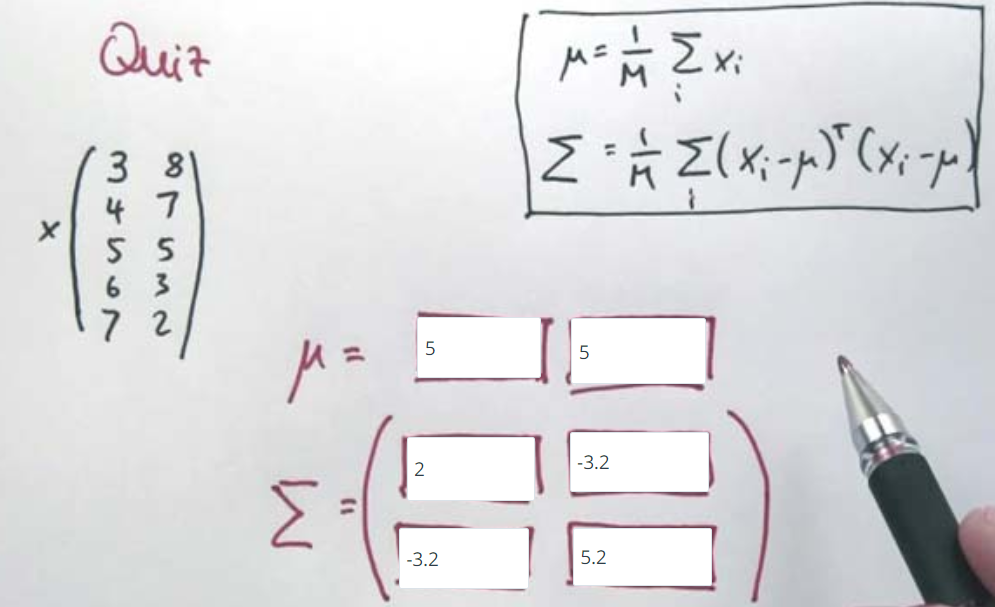 Quiz
μ = 1/M Σ_i x_i
Σ = 1/M Σ_i (x_i - μ)^T (x_i - μ)
x ( 3 8
4 7
5 5
6 3
7 2 )
μ = 5 5
Σ = ( 2 -3.2
-3.2 5.2 )